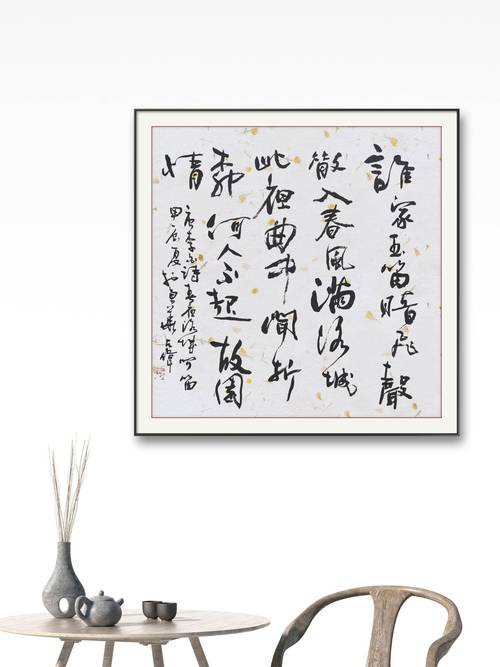 誰家玉笛暗飛聲
散入春風滿洛城
此夜曲中聞折
柳何人不起故園
情
唐李白詩春夜洛城聞笛
甲辰夏